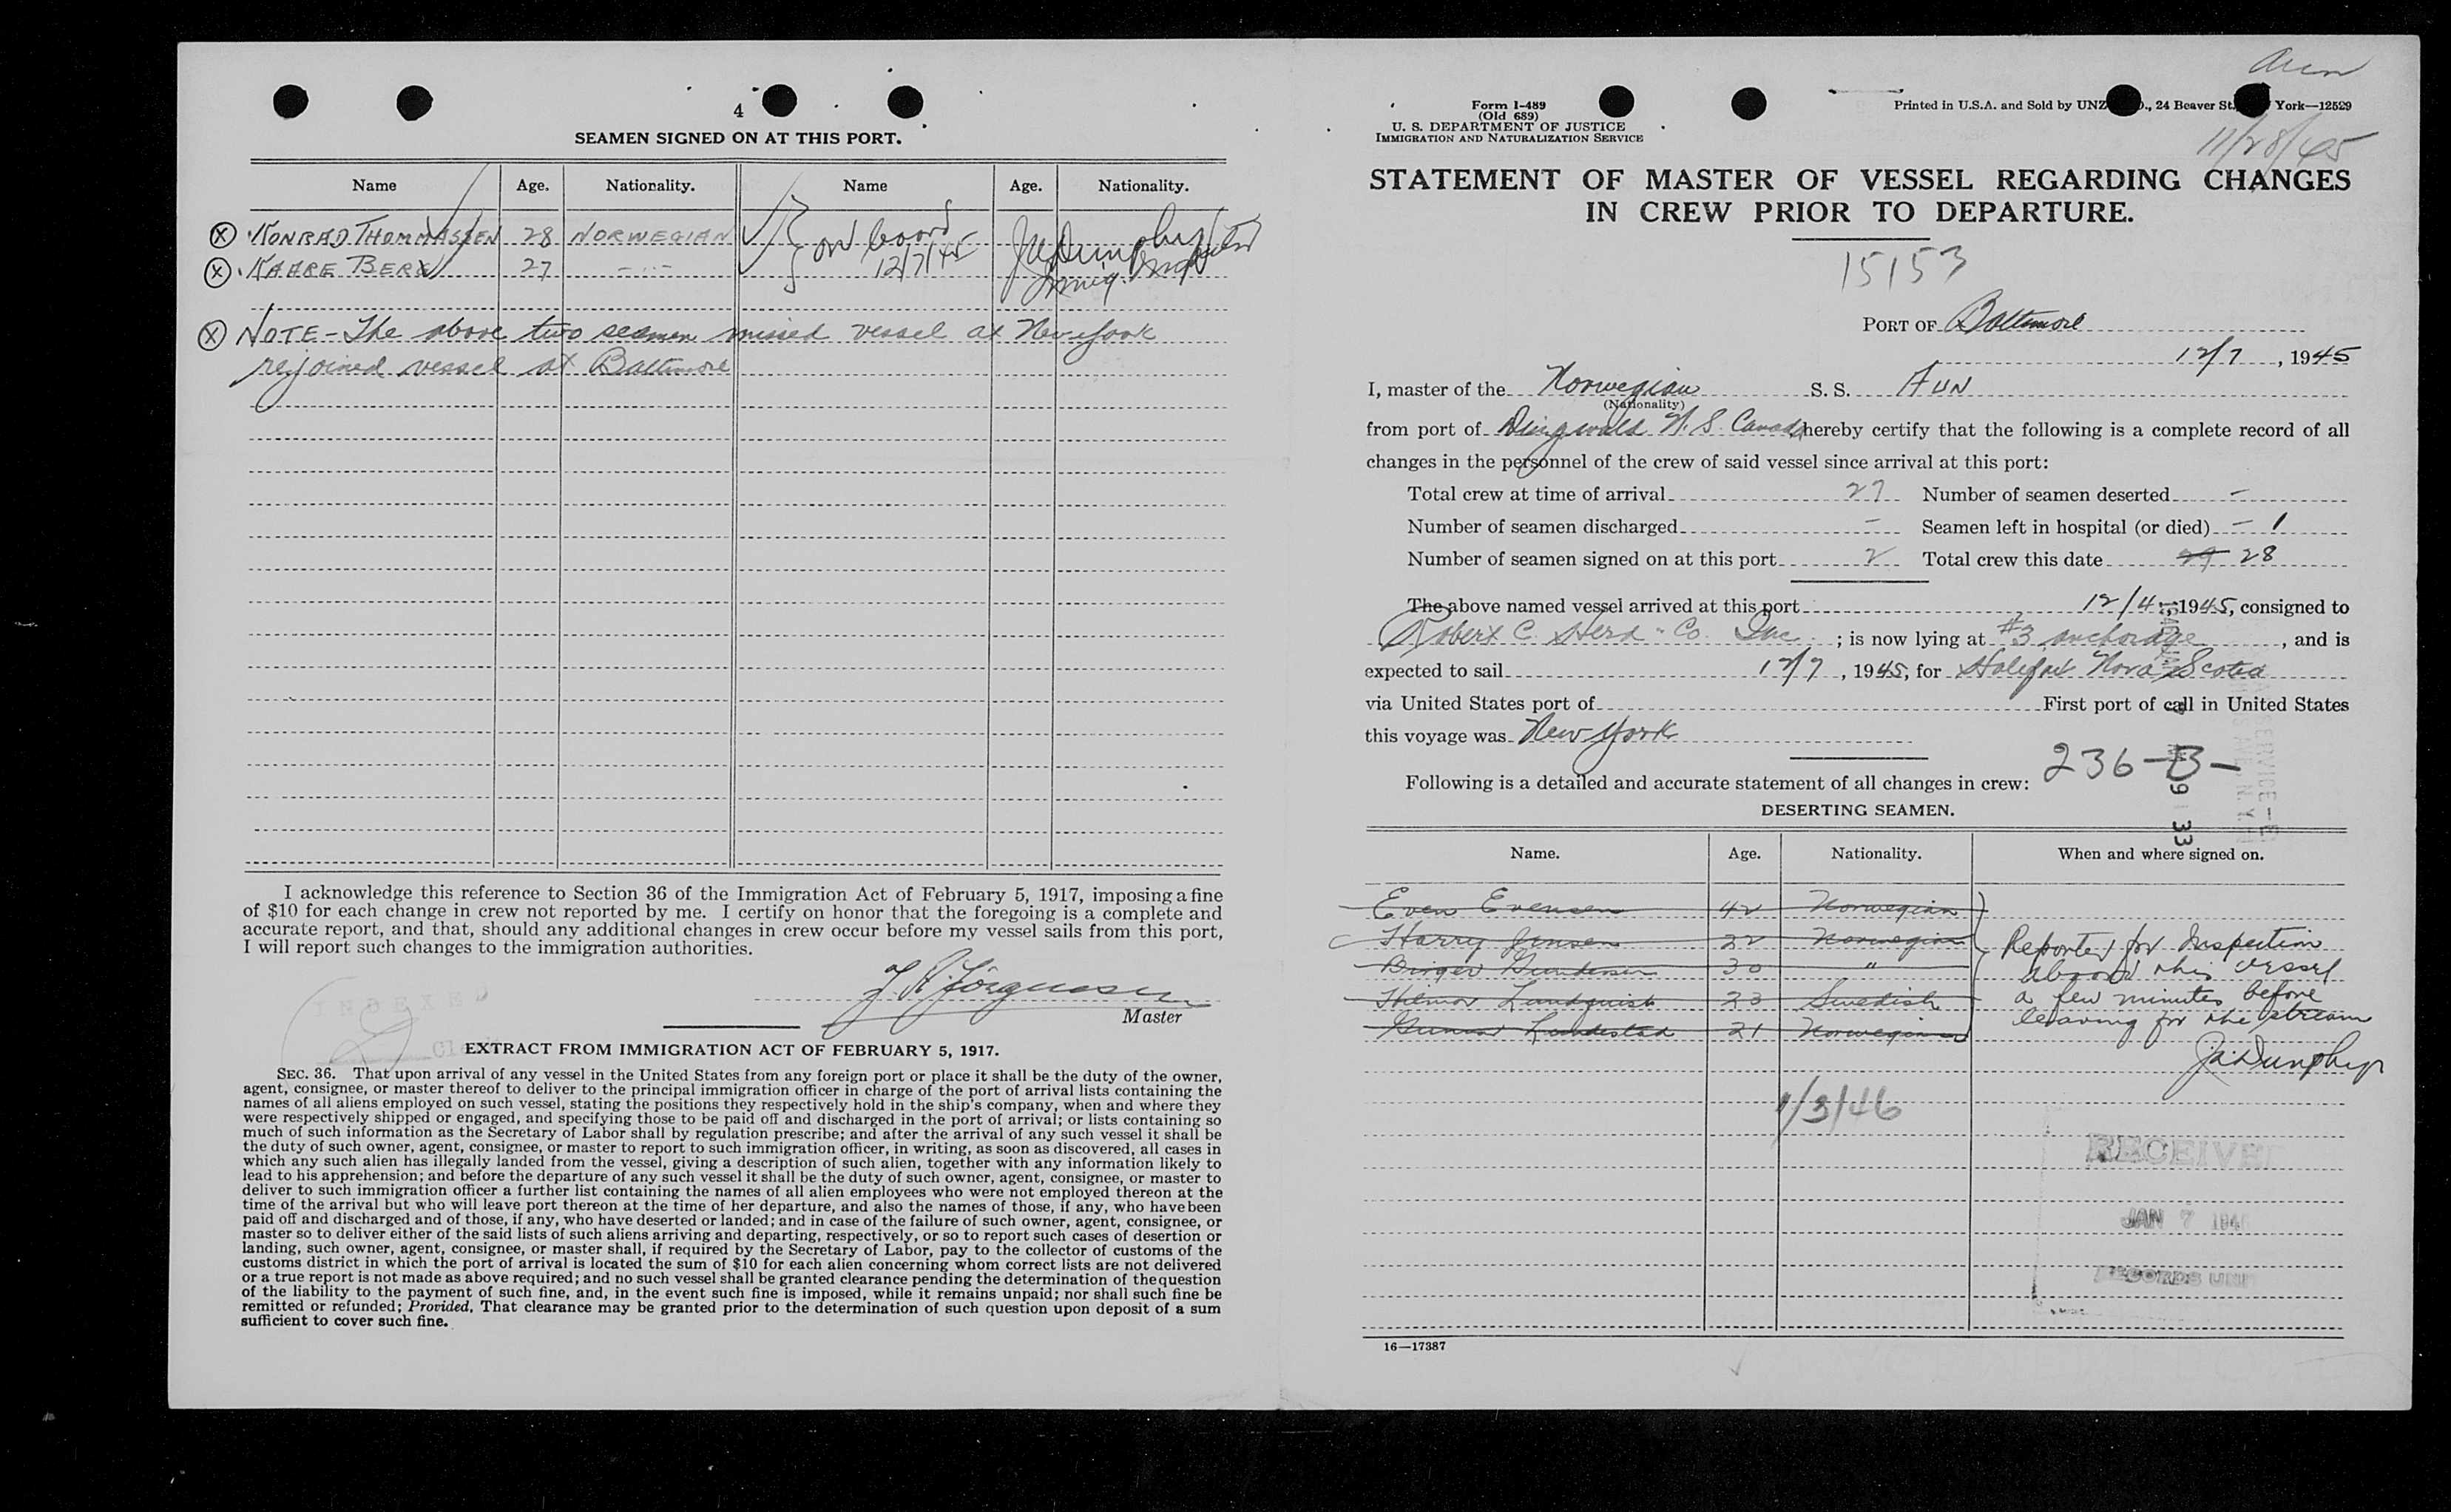 4
SEAMEN SIGNED ON AT THIS PORT.
Name Age. Nationality. Name Age. Nationality.
X KONRAD THOMMASSEN 28 NORWEGIAN on board
X KAARE BERG 27 -·- 12/7/45
Immig. Inspector
X NOTE - The above two seamen missed vessel at New York
rejoined vessel at Baltimore
I acknowledge this reference to Section 36 of the Immigration Act of February 5, 1917, imposing a fine
of $10 for each change in crew not reported by me. I certify on honor that the foregoing is a complete and
accurate report, and that, should any additional changes in crew occur before my vessel sails from this port,
I will report such changes to the immigration authorities.
Master
INDEXED
Clerk
EXTRACT FROM IMMIGRATION ACT OF FEBRUARY 5, 1917.
SEC. 36. That upon arrival of any vessel in the United States from any foreign port or place it shall be the duty of the owner,
agent, consignee, or master thereof to deliver to the principal immigration officer in charge of the port of arrival lists containing the
names of all aliens employed on such vessel, stating the positions they respectively hold in the ship's company, when and where they
were respectively shipped or engaged, and specifying those to be paid off and discharged in the port of arrival; or lists containing so
much of such information as the Secretary of Labor shall by regulation prescribe; and after the arrival of any such vessel it shall be
the duty of such owner, agent, consignee, or master to report to such immigration officer, in writing, as soon as discovered, all cases in
which any such alien has illegally landed from the vessel, giving a description of such alien, together with any information likely to
lead to his apprehension; and before the departure of any such vessel it shall be the duty of such owner, agent, consignee, or master to
deliver to such immigration officer a further list containing the names of all alien employees who were not employed thereon at the
time of the arrival but who will leave port thereon at the time of her departure, and also the names of those, if any, who have been
paid off and discharged and of those, if any, who have deserted or landed; and in case of the failure of such owner, agent, consignee, or
master so to deliver either of the said lists of such aliens arriving and departing, respectively, or so to report such cases of desertion or
landing, such owner, agent, consignee, or master shall, if required by the Secretary of Labor, pay to the collector of customs of the
customs district in which the port of arrival is located the sum of $10 for each alien concerning whom correct lists are not delivered
or a true report is not made as above required; and no such vessel shall be granted clearance pending the determination of the question
of the liability to the payment of such fine, and, in the event such fine is imposed, while it remains unpaid; nor shall such fine be
remitted or refunded; Provided, That clearance may be granted prior to the determination of such question upon deposit of a sum
sufficient to cover such fine.
Form I-489
(Old 689)
U. S. DEPARTMENT OF JUSTICE
IMMIGRATION AND NATURALIZATION SERVICE
Printed in U.S.A. and Sold by UNZ , 24 Beaver St. York—12529
11/28/45
STATEMENT OF MASTER OF VESSEL REGARDING CHANGES
IN CREW PRIOR TO DEPARTURE.
15153
PORT OF Baltimore
12/7, 1945
I, master of the Norwegian S. S. AUN
(Nationality)
from port of Dingwald N.S. Canada hereby certify that the following is a complete record of all
changes in the personnel of the crew of said vessel since arrival at this port:
Total crew at time of arrival 27 Number of seamen deserted -
Number of seamen discharged - Seamen left in hospital (or died) - 1
Number of seamen signed on at this port 2 Total crew this date 29 28
The above named vessel arrived at this port 12/4, 1945, consigned to
Robert C. Herd & Co. Inc.; is now lying at #3 anchorage, and is
expected to sail 12/7, 1945, for Halifax Nova Scotia
via United States port of First port of call in United States
this voyage was New York
236-B-
Following is a detailed and accurate statement of all changes in crew:
DESERTING SEAMEN.
Name. Age. Nationality. When and where signed on.
Even Evensen 42 Norwegian
Harry Jensen 22 Norwegian Reported for Inspection
Birger Gundersen 30 " aboard this vessel
Hilmar Lundquist 23 Swedish a few minutes before
Gunnar Lundestad 21 Norwegian leaving for the stream
J.A. Dunphy
1/3/46
RECEIVED
JAN 7 1946
RECORDS UNIT
16—17387